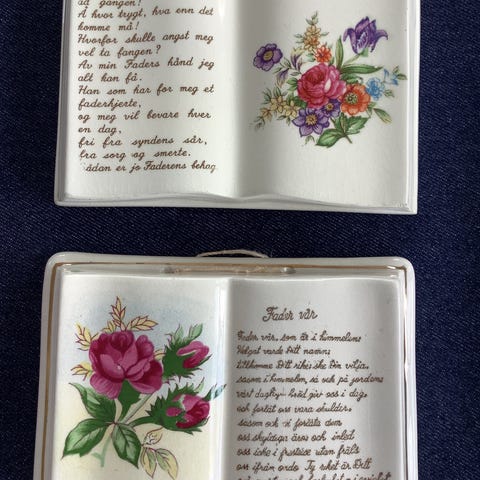 da gangen!
Å hvor trygt, hva enn det
komme må!
Hvorfor skulle angst meg
vel ta fangen?
Av min Faders hånd jeg
alt kan få.
Han som har for meg et
faderhjerte,
og meg vil bevare hver
en dag,
fri fra syndens sår,
fra sorg og smerte.
Sådan er jo Faderens behag
Fader vår
Fader vår, som är i himmelen;
Helgat varde Ditt namn;
tillkomme Ditt rike; ske Din vilja,
såsom i himmelen, så och på jorden;
vårt dagliga bröd giv oss i dag,
och förlåt oss våra skulder,
såsom och vi förlåta dem
oss skyldiga äro; och inled
oss icke i frestelse utan fräls
oss ifrån ondo Ty riket är Ditt